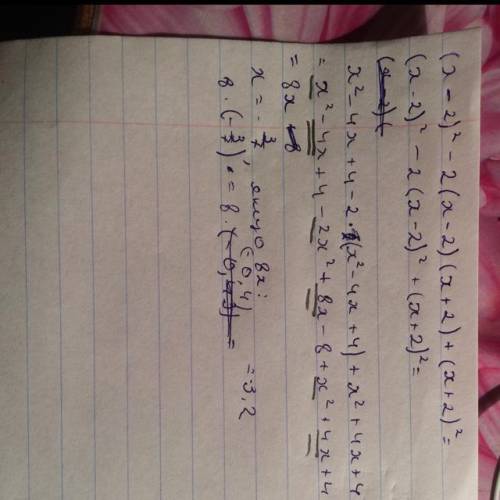 (x - 2)² - 2(x - 2)(x + 2) + (x + 2)² =
(x - 2)² - 2(x - 2)² + (x + 2)² =
x² - 4x + 4 - 2 · (x² - 4x + 4) + x² + 4x + 4
= x² - 4x + 4 - 2x² + 8x - 8 + x² + 4x + 4
= 8x
x = - 3/7, якщо 8x:
8 · (- 3/7) = 8 · (0,4) = 3,2